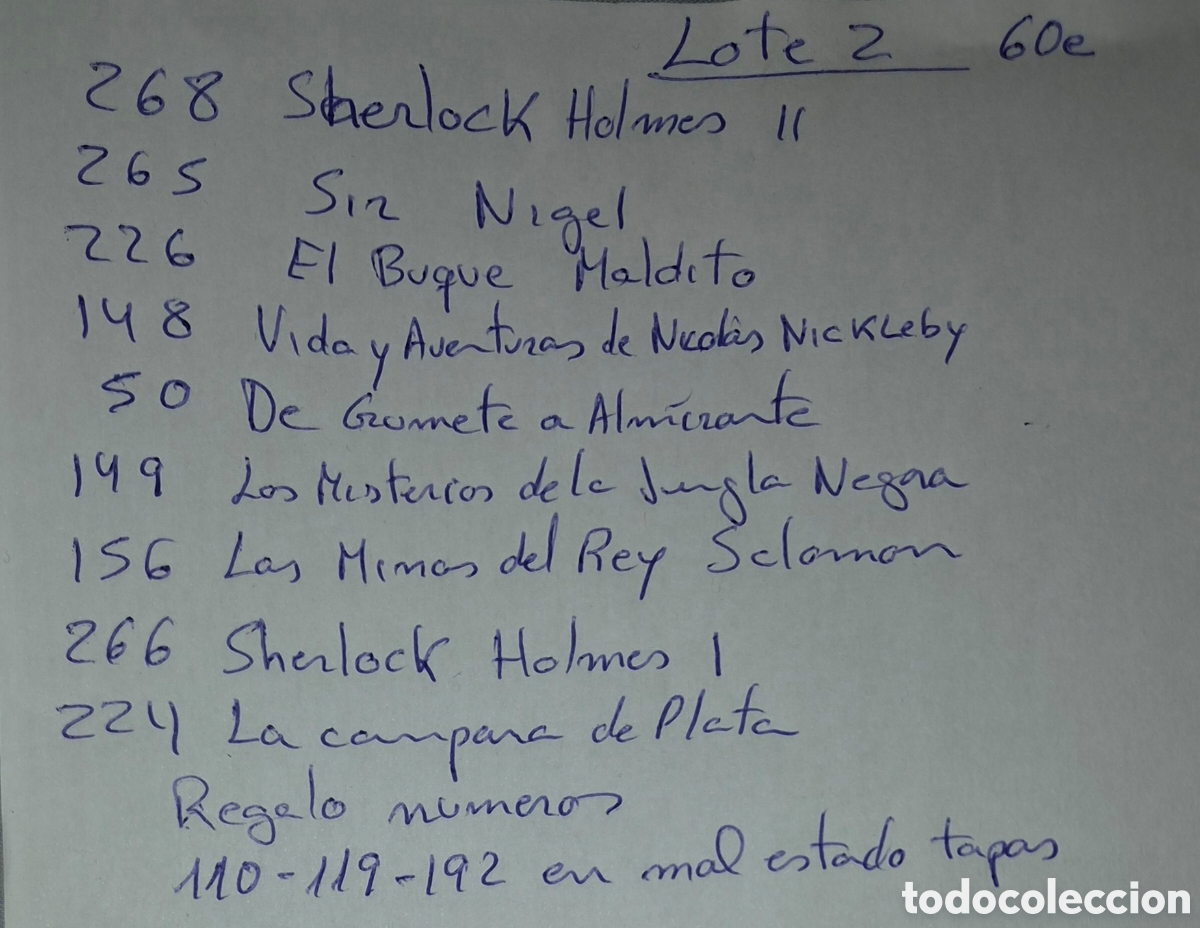 Lote 2 60e
268 Sherlock Holmes II
265 Sir Nigel
226 El Buque Maldito
148 Vida y Aventuras de Nicolàs Nickleby
50 De Grumete a Almirante
149 Los Misterios de la Jungla Negra
156 Las Minas del Rey Salomon
266 Sherlock Holmes I
224 La campana de Plata
Regalo numeros
110-119-192 en mal estado tapas
todocoleccion